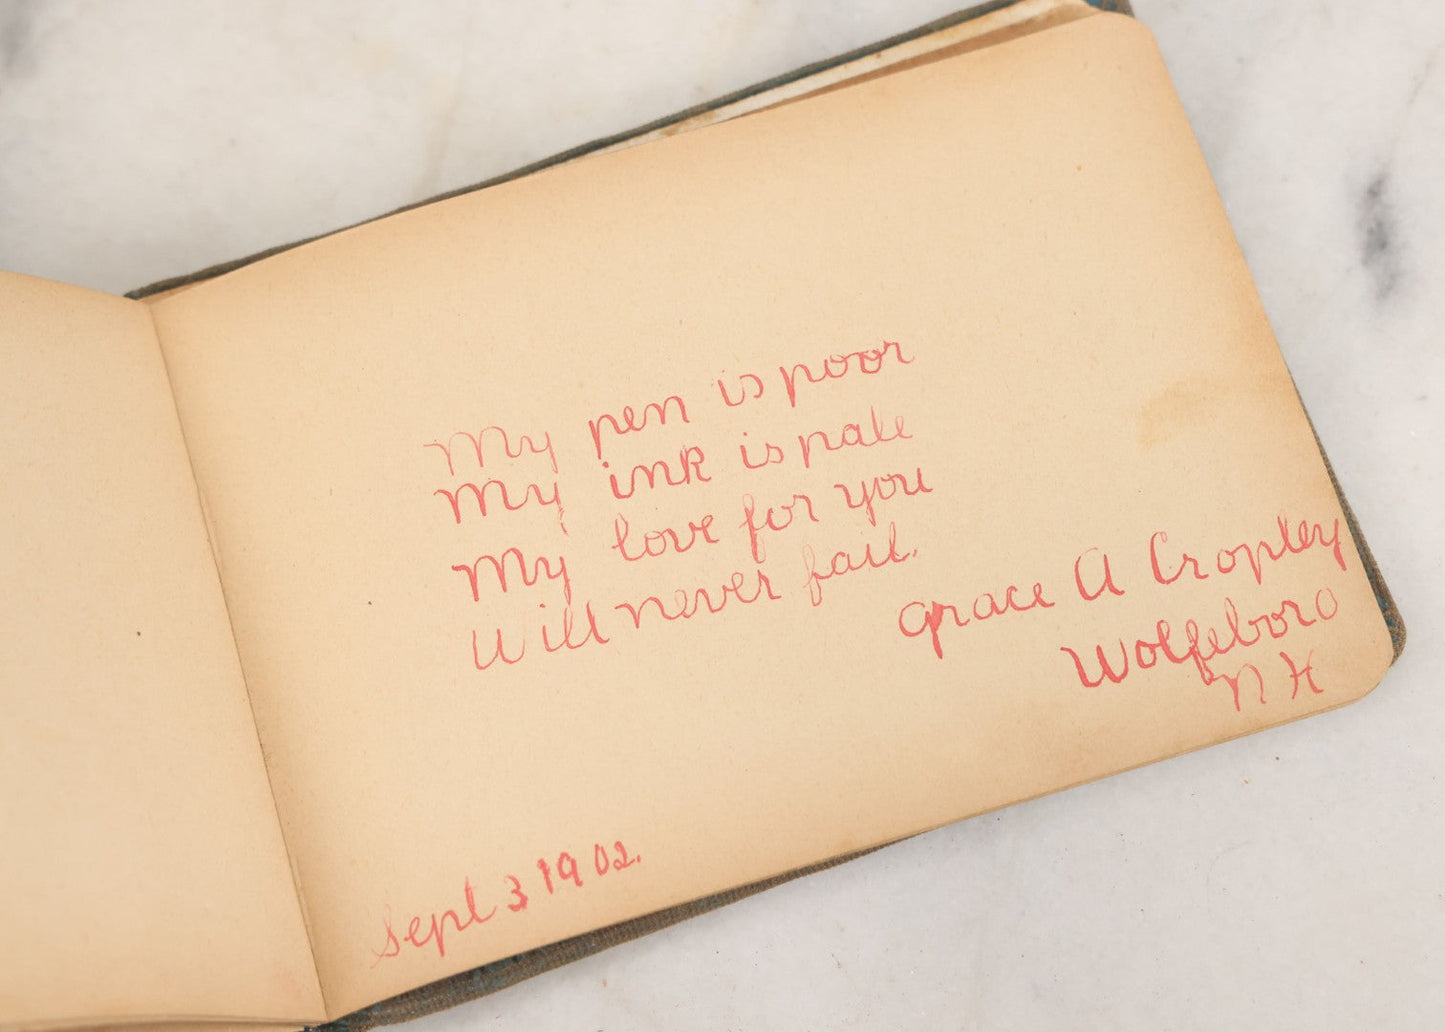 My pen is poor
My ink is pale
My love for you
Will never fail.
Grace A Cropley
Wolfeboro
N H
Sept 3 1902.